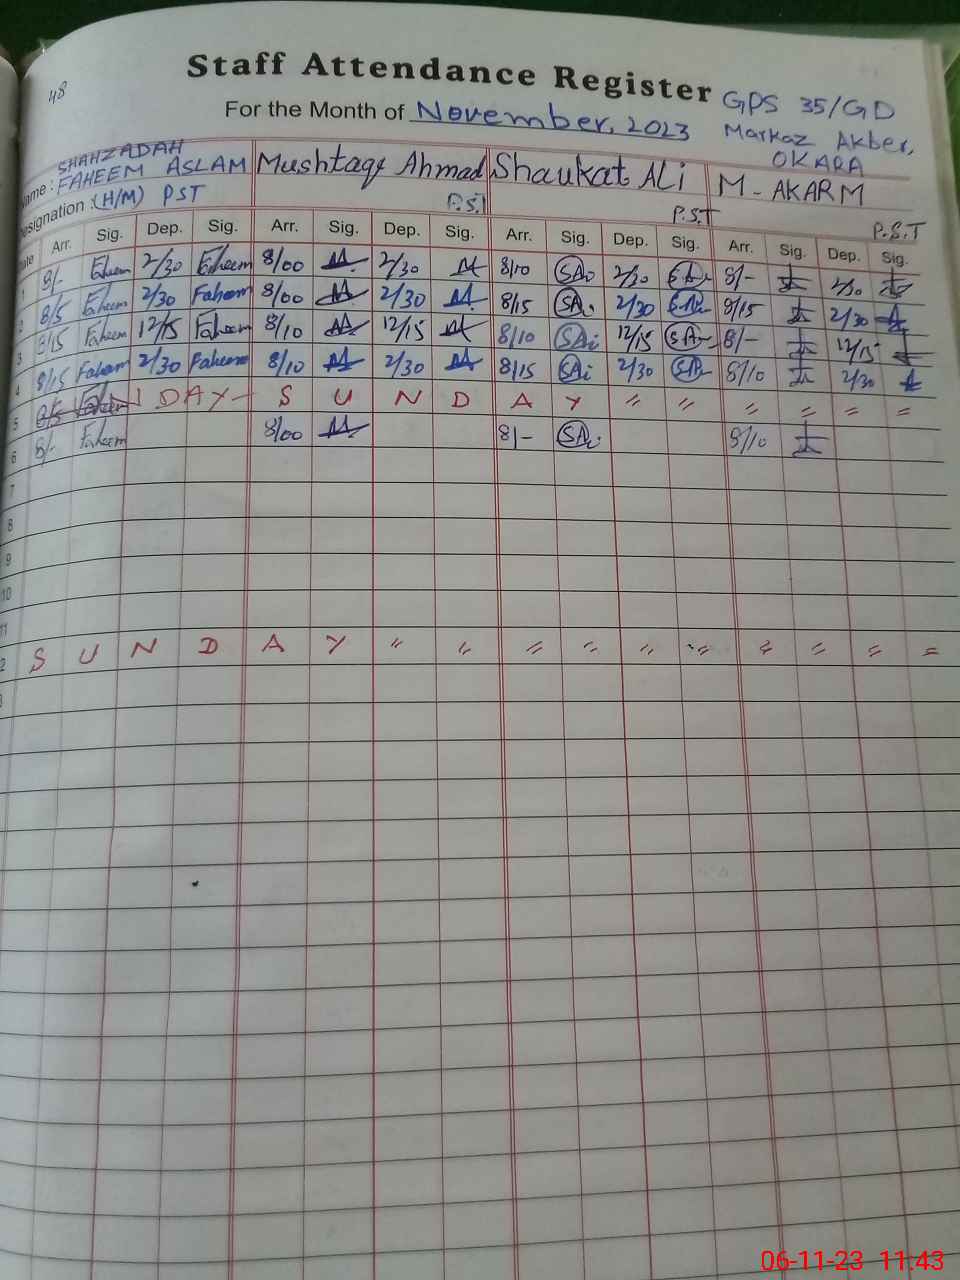 48
Staff Attendance Register
For the Month of November, 2023
GPS 35/GD
Markaz Akber,
OKARA
Name : SHAHZADAH FAHEEM ASLAM Mushtaqe Ahmad Shaukat ALi M - AKARM
Designation : (H/M) PST P.S.T P.S.T P.S.T
Date Arr. Sig. Dep. Sig. Arr. Sig. Dep. Sig. Arr. Sig. Dep. Sig. Arr. Sig. Dep. Sig.
1 8/- Faheem 2/30 Faheem 8/00 2/30 8/10 2/30 8/- 2/30
2 8/5 Faheem 2/30 Faheem 8/00 2/30 8/15 2/30 8/15 2/30
3 8/15 Faheem 12/15 Faheem 8/10 12/15 8/10 12/15 8/- 12/15
4 8/15 Faheem 2/30 Faheem 8/10 2/30 8/15 2/30 8/10 2/30
5 DAY- S U N D A Y " " " " " "
6 8/- Faheem 8/00 8/- 8/10
7
8
9
10
11
2 S U N D A Y " " " " " " " " " "
06-11-23 11:43